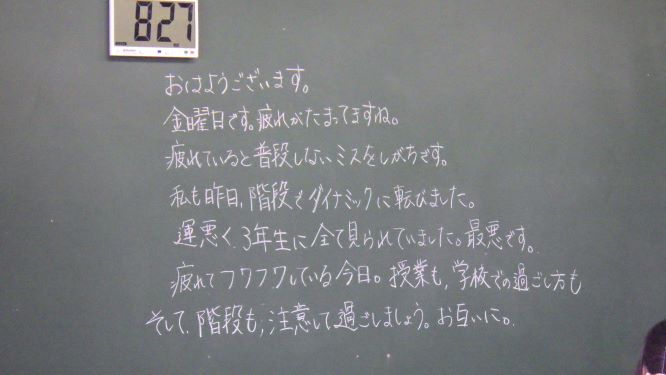 827
おはようございます。
金曜日です。疲れがたまってますね。
疲れていると普段しないミスをしがちです。
私も昨日、階段でダイナミックに転びました。
運悪く、3年生に全て見られていました。最悪です。
疲れてフワフワしている今日。授業も、学校での過ごし方も
そして、階段も、注意して過ごしましょう。お互いに。